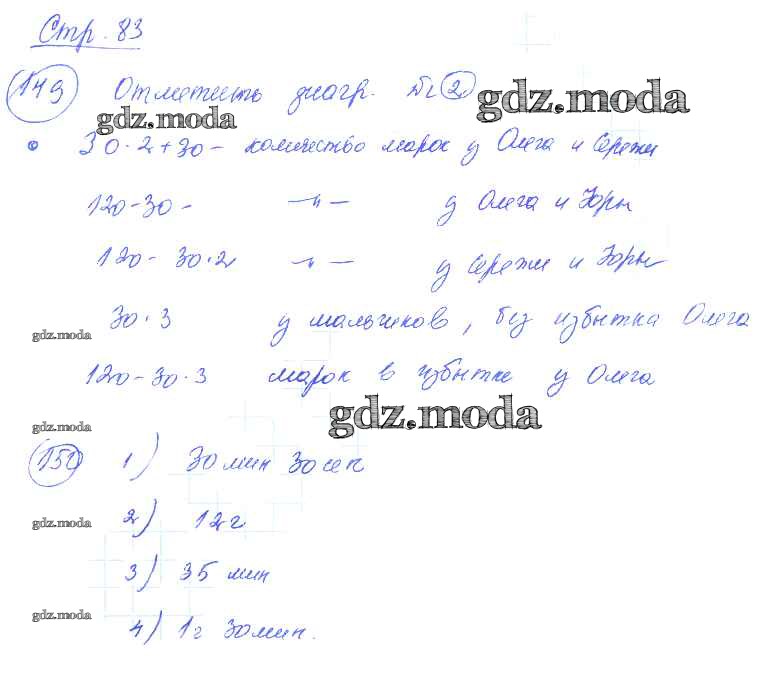 Стр. 83
149 Отметить диагр. № 2 gdz.moda
gdz.moda
30·2+30 - количество марок у Олега и Сережи
120-30 - -"- у Олега и Юры
120 - 30·2 -"- у Сережи и Юры
30·3 у мальчиков, без избытка Олега
gdz.moda
120-30·3 марок в избытке у Олега
gdz.moda
gdz.moda
150 1) 30 мин 30 сек
gdz.moda
2) 12 г
3) 35 мин
gdz.moda
4) 1 г 30 мин.